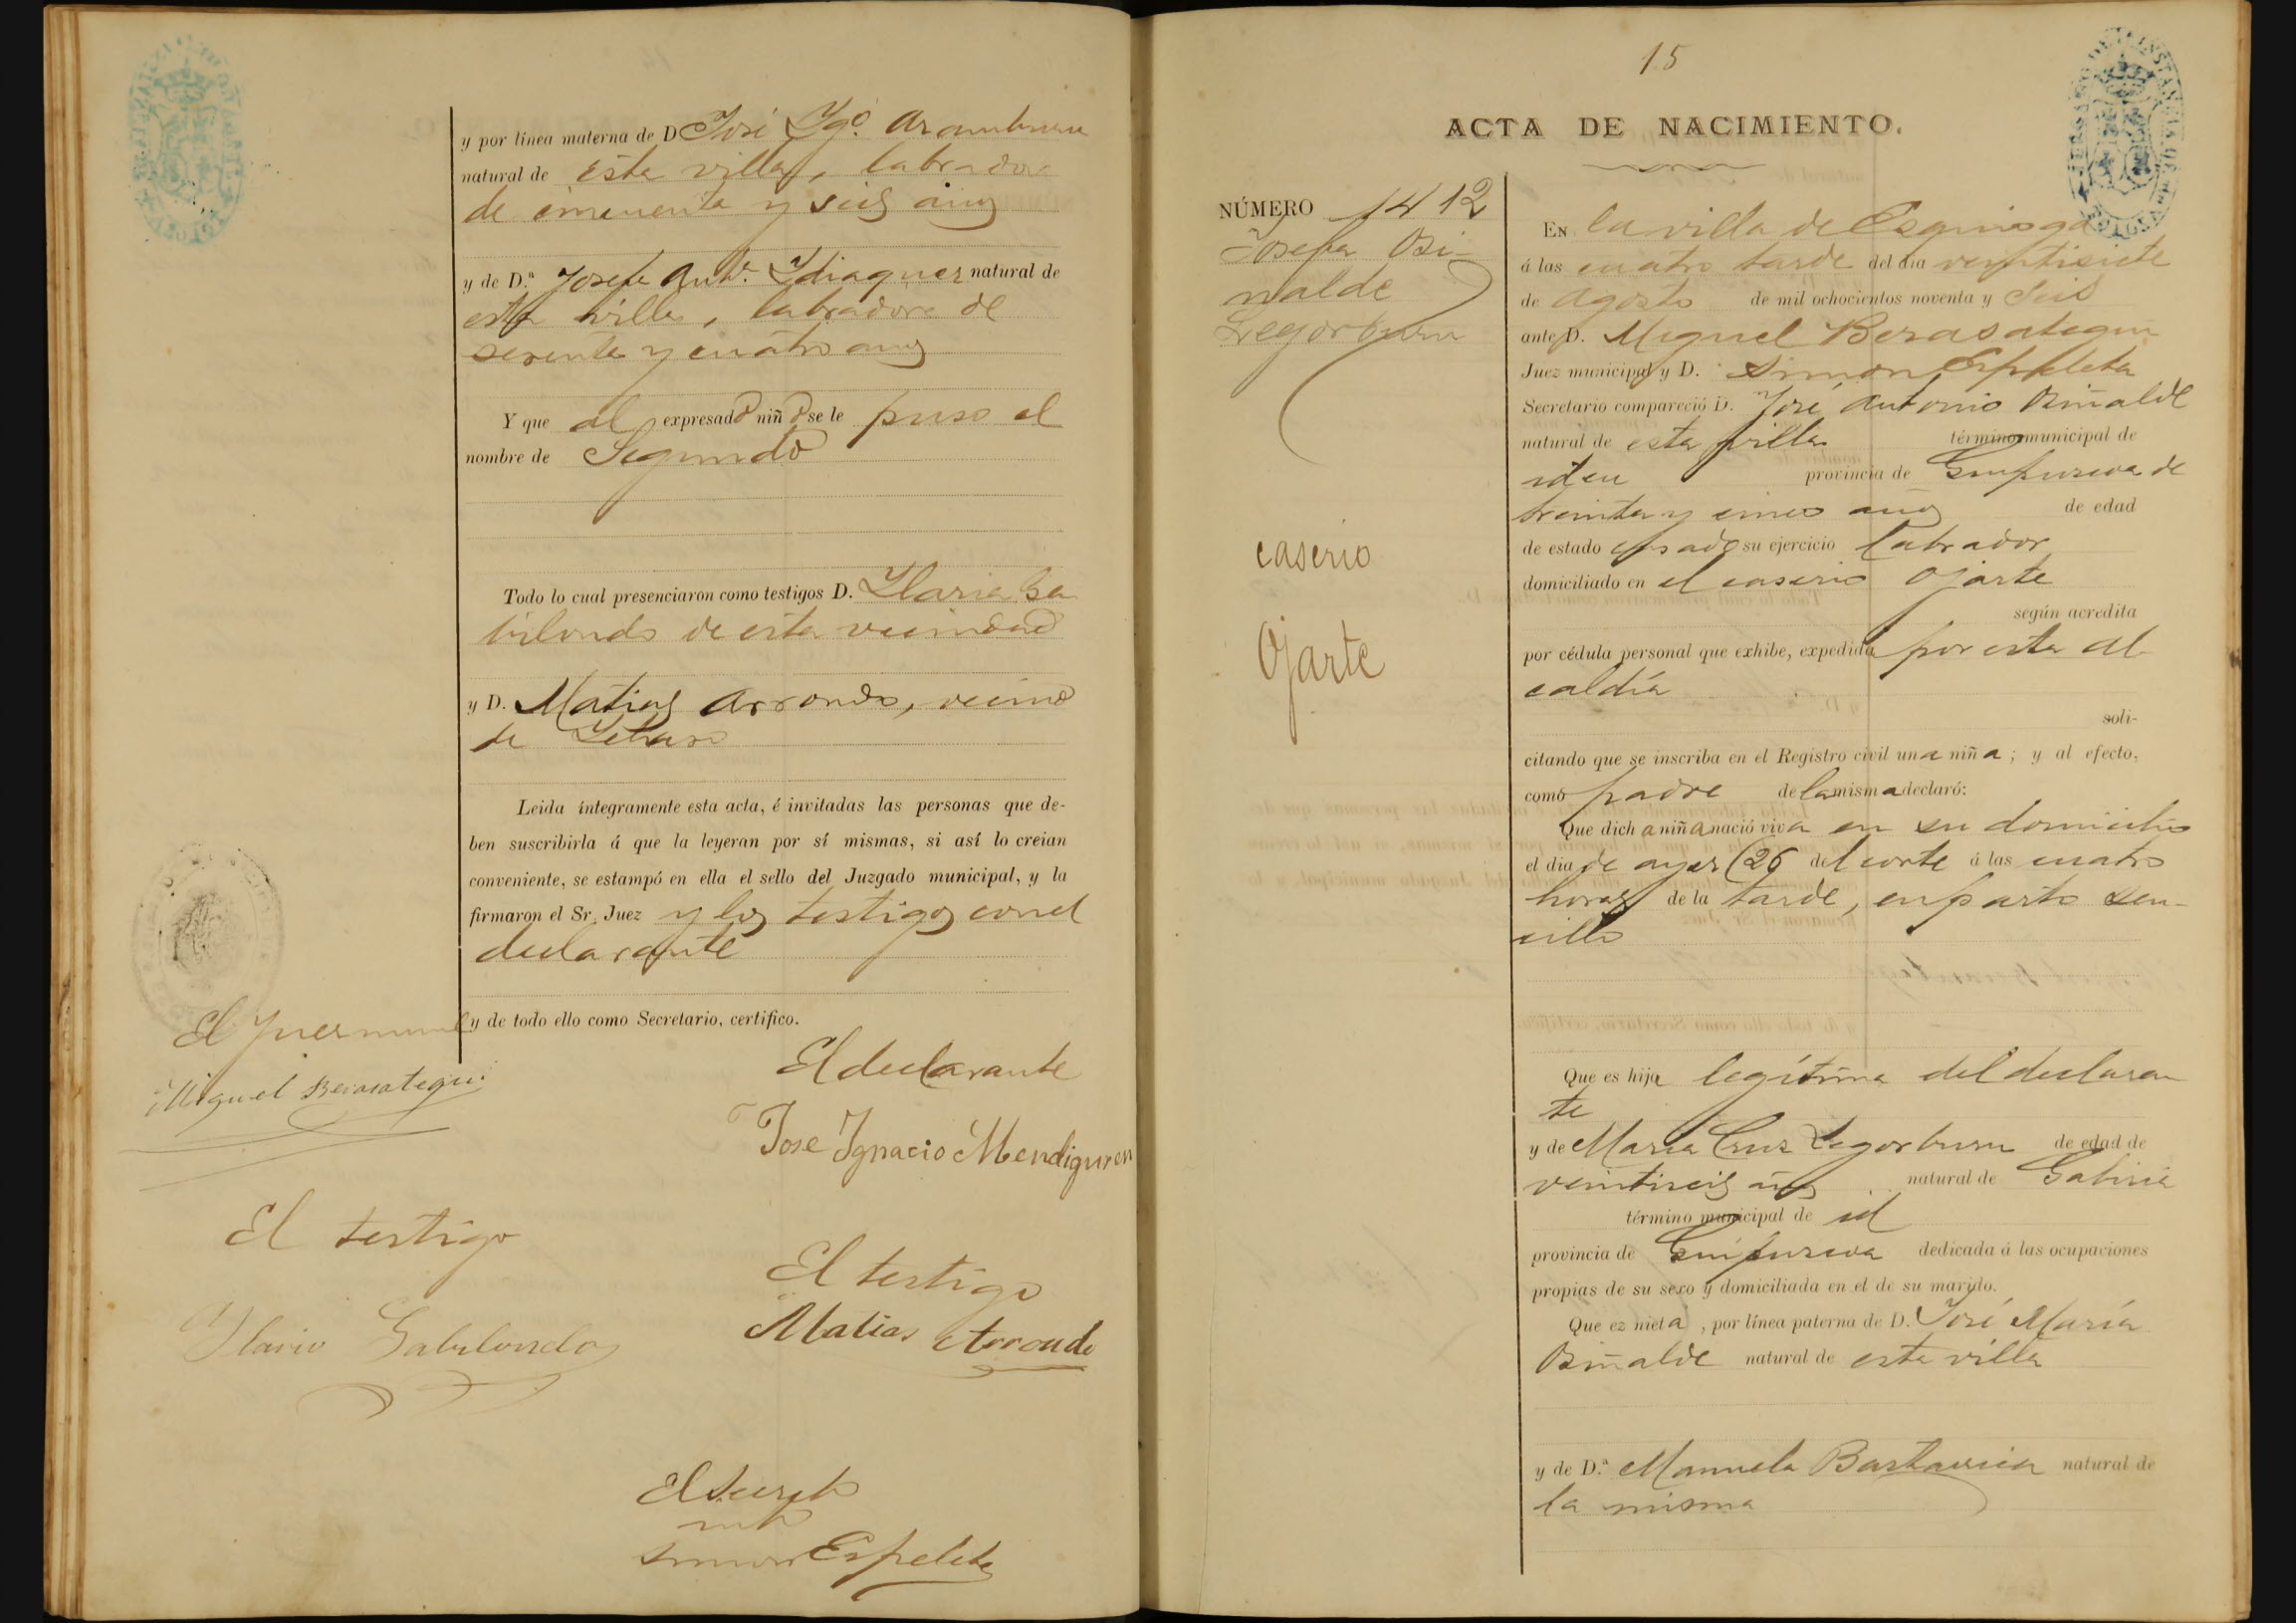 y por línea materna de D José Ygº. Aramburu
natural de esta villa, labrador
de cincuenta y seis años
y de D.ª Josefa Antª. Ydiaquez natural de
esta villa, labradora de
sesenta y cuatro años
Y que al expresado niño se le puso el
nombre de Segundo
Todo lo cual presenciaron como testigos D. Ylario Ga
bilondo de esta vecindad
y D. Matias Arrondo, vecino
de
Leida íntegramente esta acta, é invitadas las personas que de-
ben suscribirla á que la leyeran por sí mismas, si así lo creian
conveniente, se estampó en ella el sello del Juzgado municipal, y la
firmaron el Sr. Juez y los testigos con el
declarante
y de todo ello como Secretario, certifico.
El Juez
Miguel Berasategui
El declarante
José Ygnacio Mendiguren
El testigo
Ylario Gabilondo
El testigo
Matias Arrondo
El Secreta
rio
Simon Espeleta
15
ACTA DE NACIMIENTO.
NÚMERO 1412
Josefa Osi-
nalde
Legorburu
caserio
Ojarte
En la villa de Ezquioga
á las cuatro tarde del dia veintisiete
de Agosto de mil ochocientos noventa y seis
ante D. Miguel Berasategui
Juez municipal y D. Simon Espeleta
Secretario compareció D. José Antonio Osiñalde
natural de esta villa término municipal de
idem provincia de Guipuzcoa de
treinta y cinco años de edad
de estado casado su ejercicio labrador
domiciliado en el caserio Ojarte
según acredita
por cédula personal que exhibe, expedida por esta Al
caldía
soli-
citando que se inscriba en el Registro civil una niña; y al efecto,
como padre de la misma declaró:
Que dicha niña nació viva en su domicilio
el dia de ayer (26 del corte á las cuatro
horas de la tarde, en parto sen-
cillo
Que es hija legítima del declaran
te
y de María Cruz Legorburu de edad de
veintiseis años natural de Gabiria
término municipal de id
provincia de Guipuzcoa dedicada á las ocupaciones
propias de su sexo y domiciliada en el de su marido.
Que es nieta, por línea paterna de D. José María
Osiñalde natural de esta villa
y de D.ª Manuela Bastarrica natural de
la misma